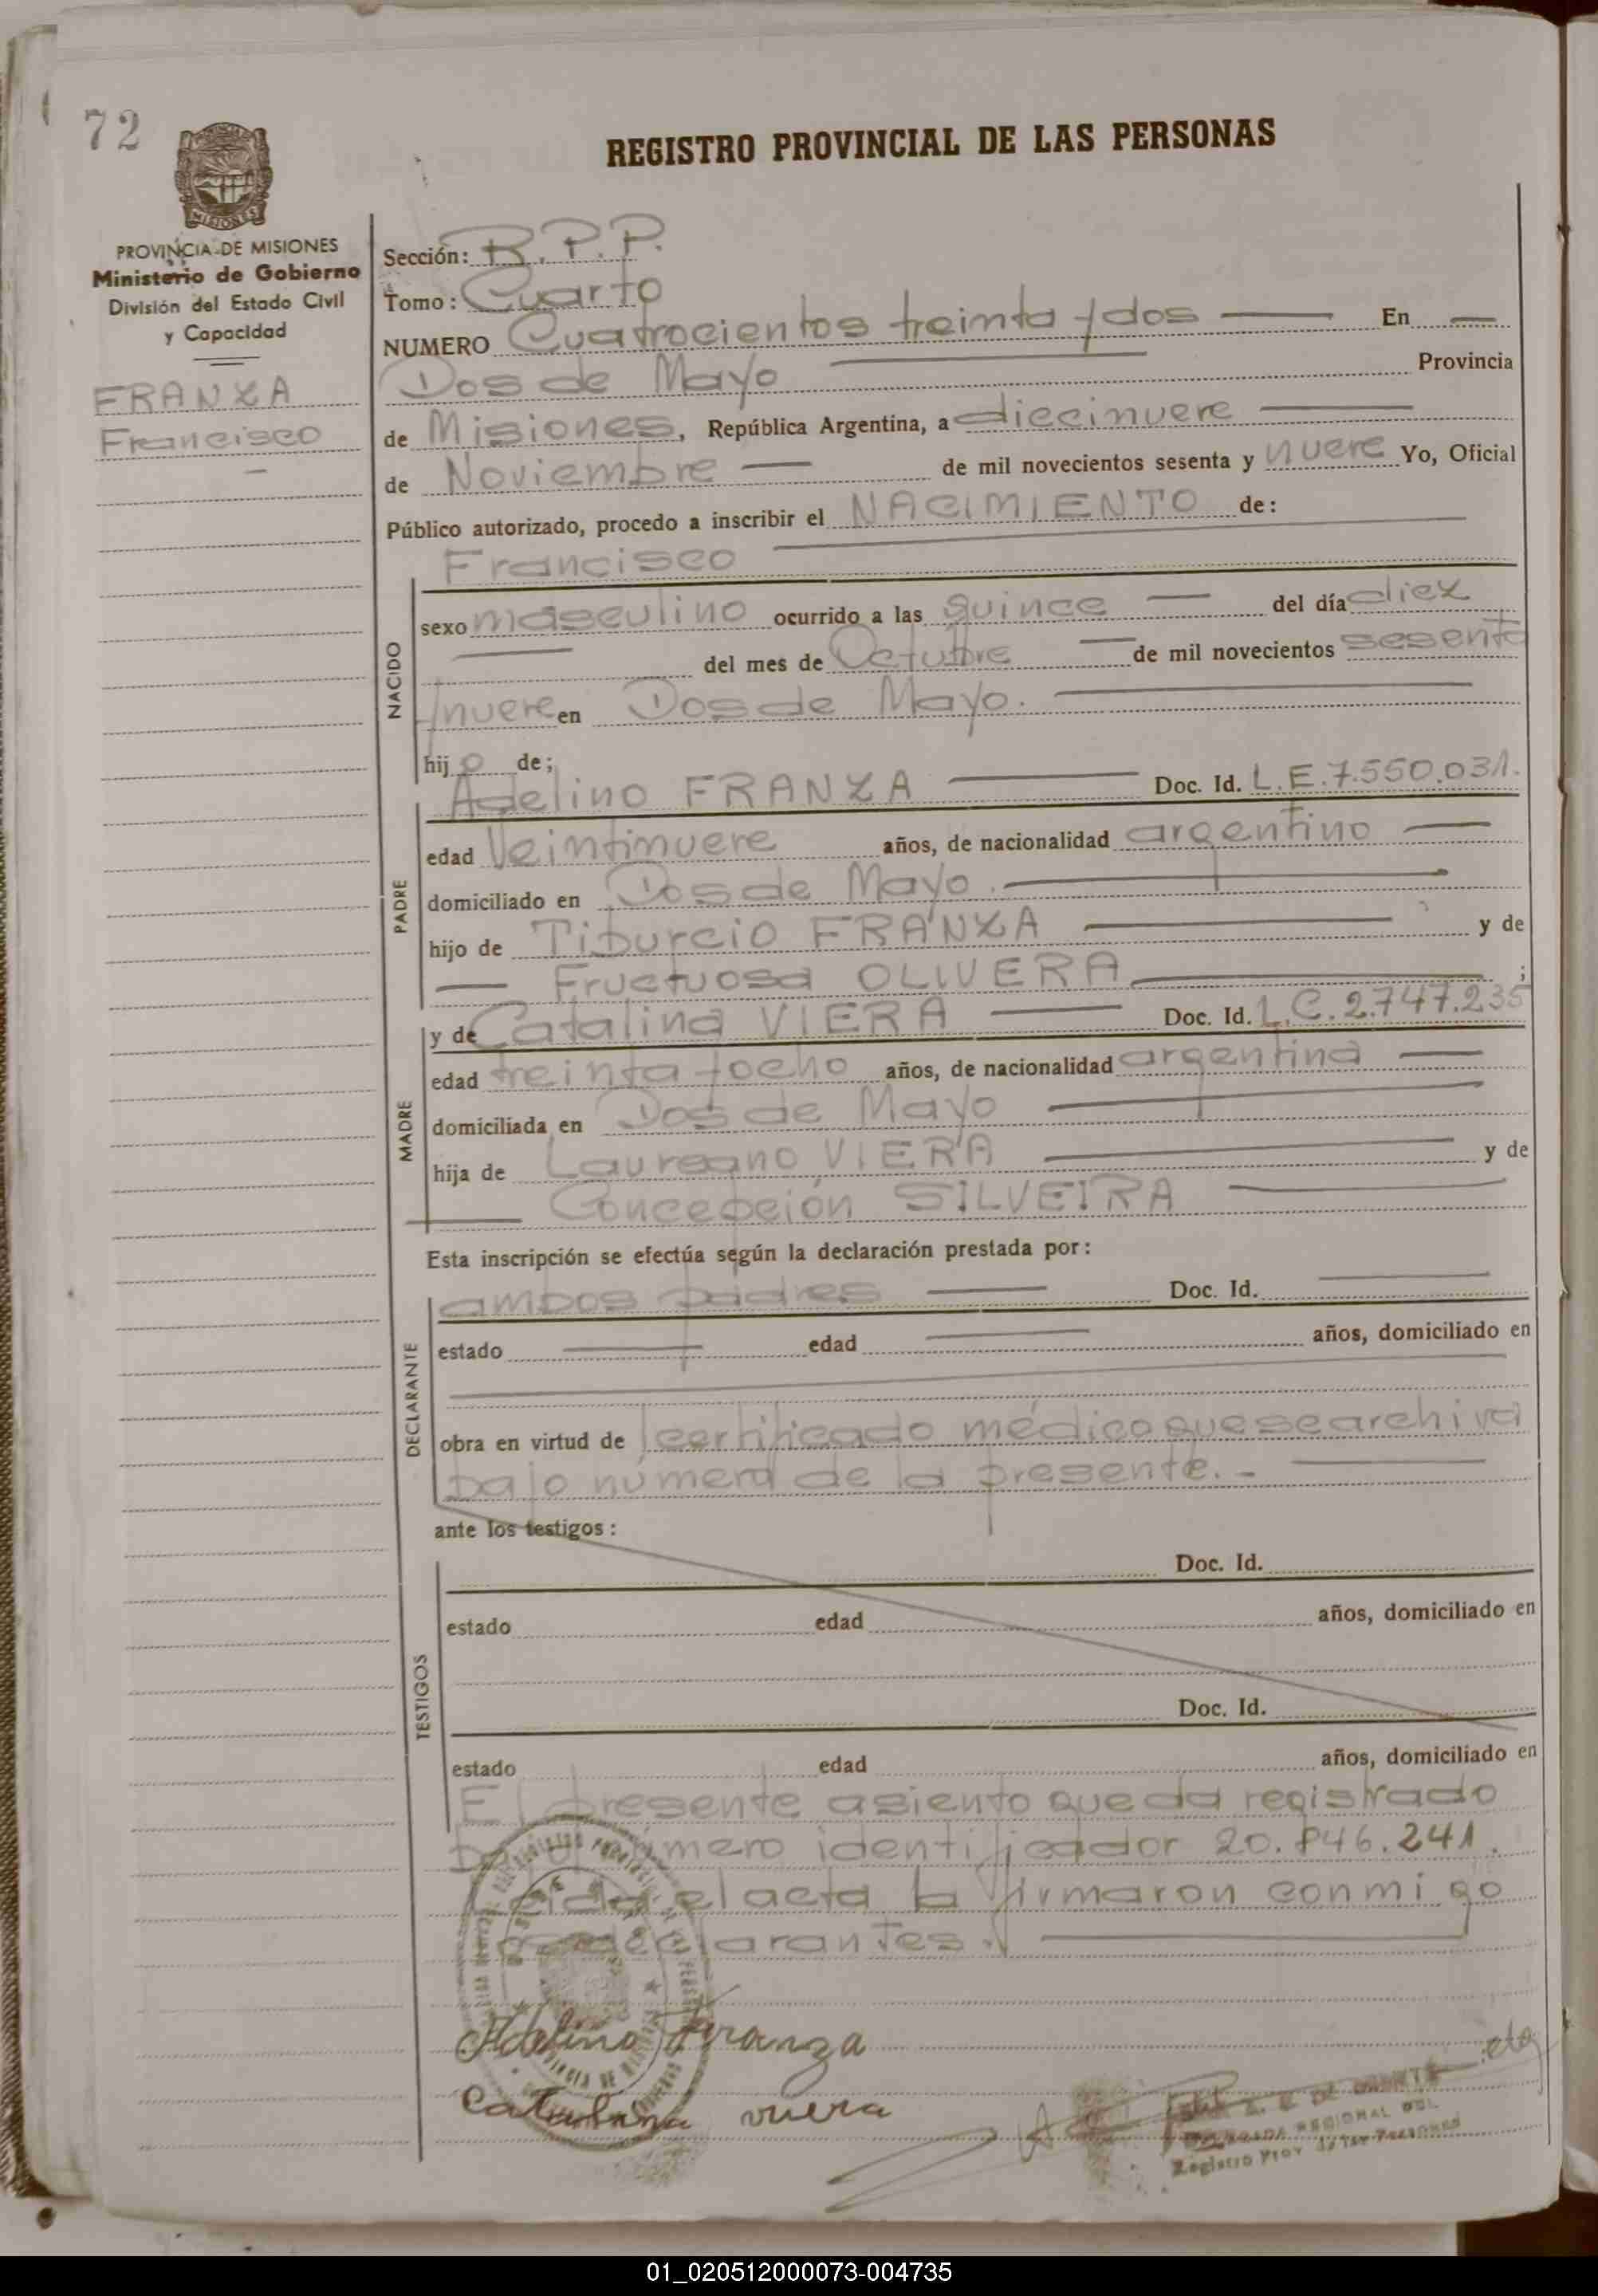 72
MISIONES
PROVINCIA DE MISIONES
Ministerio de Gobierno
División del Estado Civil
y Capacidad
FRANZA
Francisco
REGISTRO PROVINCIAL DE LAS PERSONAS
Sección: B.P.P.
Tomo: Cuarto
NUMERO Cuatrocientos treinta y dos En
Dos de Mayo Provincia
de Misiones, República Argentina, a diecinueve
de Noviembre de mil novecientos sesenta y nueve Yo, Oficial
Público autorizado, procedo a inscribir el NACIMIENTO de:
Francisco
NACIDO
sexo masculino ocurrido a las quince del día diez
del mes de Octubre de mil novecientos sesenta
y nueve en Dos de Mayo.
hijo de;
Adelino FRANZA Doc. Id. L.E.7.550.031.
PADRE
edad Veintinueve años, de nacionalidad argentino
domiciliado en Dos de Mayo.
hijo de Tiburcio FRANZA y de
Fructuosa OLIVERA ;
y de Catalina VIERA Doc. Id. L.C.2.747.235
MADRE
edad treinta y ocho años, de nacionalidad argentina
domiciliada en Dos de Mayo
hija de Laureano VIERA y de
Concepción SILVEIRA
Esta inscripción se efectúa según la declaración prestada por:
ambos padres Doc. Id.
DECLARANTE
estado edad años, domiciliado en
obra en virtud de certificado médico que se archiva
bajo número de la presente.-
ante los testigos:
Doc. Id.
TESTIGOS
estado edad años, domiciliado en
Doc. Id.
estado edad años, domiciliado en
El presente asiento queda registrado
número identificador 20.846.241.
Leida el acta la firmaron conmigo
declarantes.
Adelino Franza
Catalina viera
REGIONAL DEL
Registro Prov de las Personas
01_020512000073-004735